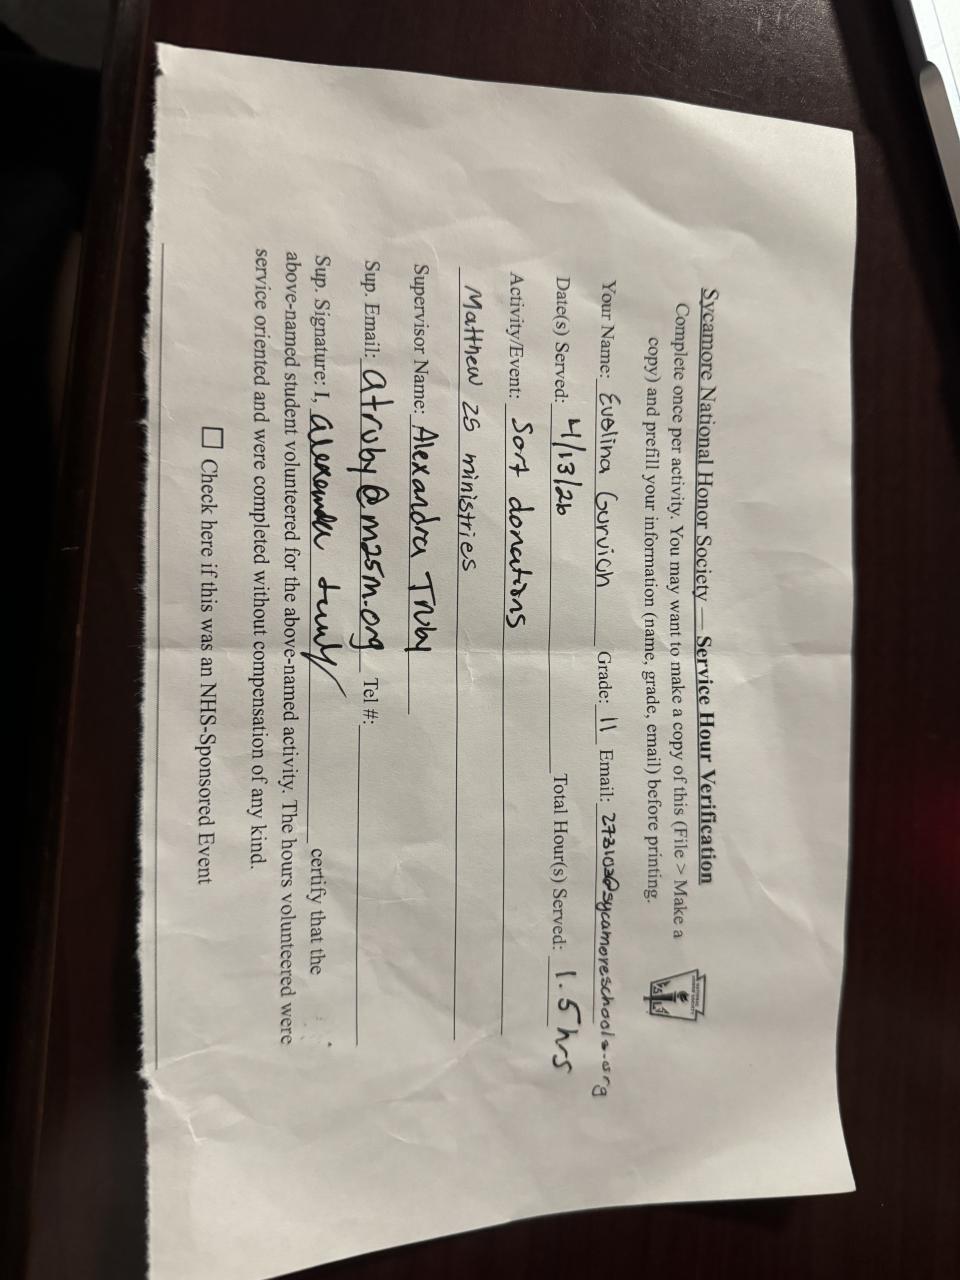 Sycamore National Honor Society — Service Hour Verification
Complete once per activity. You may want to make a copy of this (File > Make a
copy) and prefill your information (name, grade, email) before printing.
Your Name: Evelina Gurvich Grade: 11 Email: 273103@sycamoreschools.org
Date(s) Served: 4/13/26 Total Hour(s) Served: 1.5 hrs
Activity/Event: Sort donations
Matthew 25 ministries
Supervisor Name: Alexandra Truby
Sup. Email: atruby@m25m.org Tel #:
Sup. Signature: I, Alexandra Truby certify that the
above-named student volunteered for the above-named activity. The hours volunteered were
service oriented and were completed without compensation of any kind.
☐ Check here if this was an NHS-Sponsored Event